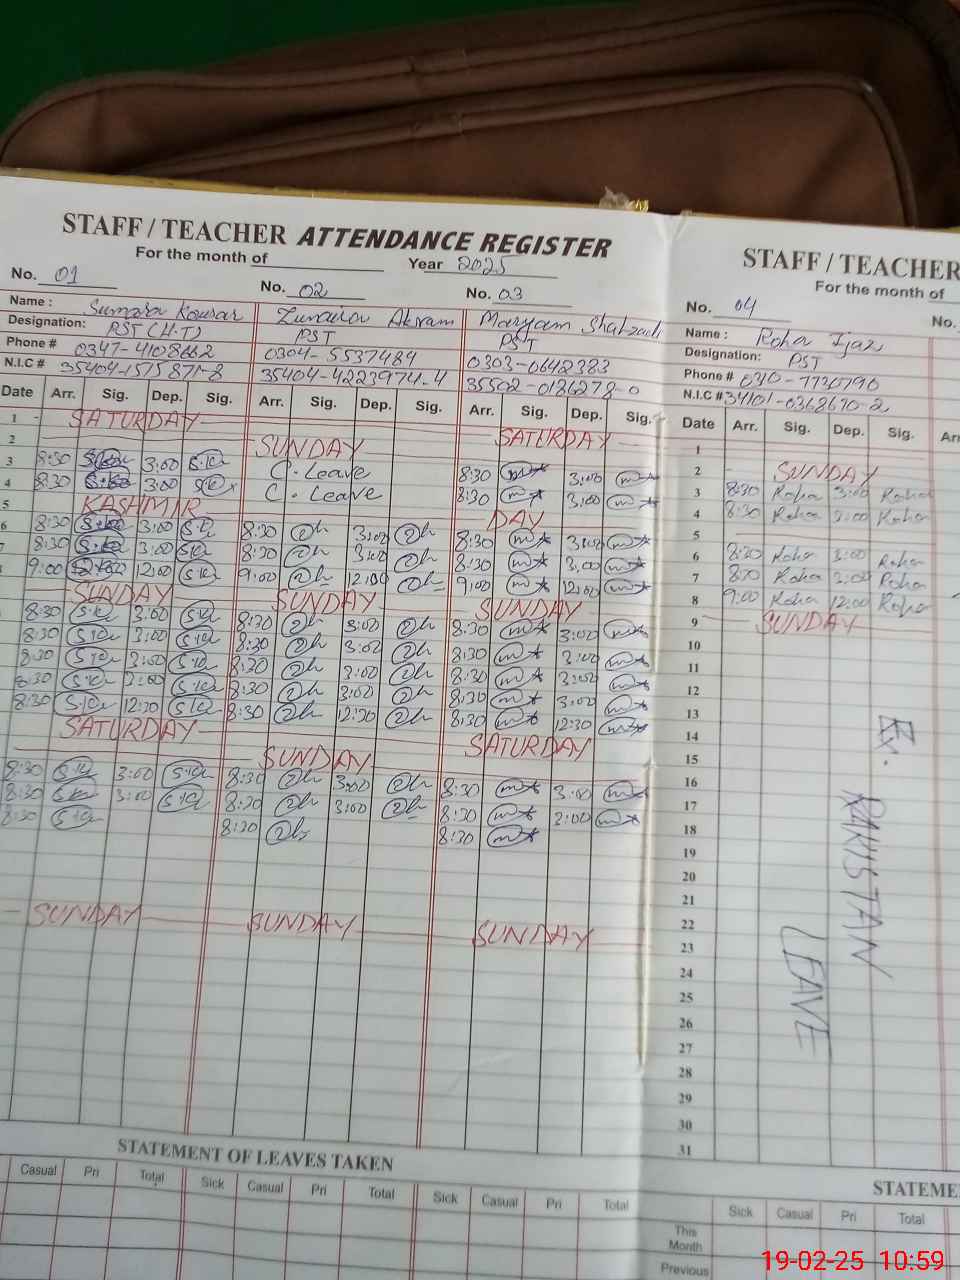 STAFF / TEACHER ATTENDANCE REGISTER
For the month of Year 2025
No. 01 No. 02 No. 03
Name : Sumara Kousar Zunaira Akram Maryam Shahzadi
Designation: PST (H.T) PST PST
Phone # 0347-4108662 0304-5537484 0303-0642383
N.I.C # 35404-1575871-8 35404-4223974-4 35502-0186278-0
Date Arr. Sig. Dep. Sig. Arr. Sig. Dep. Sig. Arr. Sig. Dep. Sig.
1 SATURDAY SATURDAY
2 SUNDAY
3 8:30 3:00 C. Leave 8:30 3:00
4 8:30 3:00 C. Leave 8:30 3:00
5 KASHMIR DAY
6 8:30 3:00 8:30 3:00 8:30 3:00
7 8:30 3:00 8:30 3:00 8:30 3:00
9:00 12:00 9:00 12:00 9:00 12:00
SUNDAY SUNDAY SUNDAY
8:30 3:00 8:30 3:00 8:30 3:00
8:30 3:00 8:30 3:00 8:30 3:00
8:30 3:00 8:30 3:00 8:30 3:00
8:30 3:00 8:30 3:00 8:30 3:00
8:30 12:30 8:30 12:30 8:30 12:30
SATURDAY SATURDAY
SUNDAY
8:30 3:00 8:30 3:00 8:30 3:00
8:30 3:00 8:30 3:00 8:30 3:00
8:30 8:30 8:30
SUNDAY SUNDAY SUNDAY
STATEMENT OF LEAVES TAKEN
Casual Pri Total Sick Casual Pri Total Sick Casual Pri Total
STAFF / TEACHER
For the month of
No. 04 No.
Name : Roha Ijaz
Designation: PST
Phone # 030-7730790
N.I.C # 34101-0368670-2
Date Arr. Sig. Dep. Sig.
1
2 SUNDAY
3 8:30 Roha 3:00 Roha
4 8:30 Roha 3:00 Roha
5
6 8:30 Roha 3:00 Roha
7 8:30 Roha 3:00 Roha
8 9:00 Roha 12:00 Roha
9 SUNDAY
10
11
12
13
14
15
16
17
18
19
20
21
22
23
24
25
26
27
28
29
30
31
Ex. PAKISTAN
LEAVE
STATEME
Sick Casual Pri Total
This Month
Previous
19-02-25 10:59